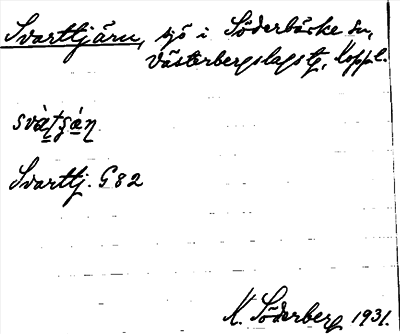 Svarttjärn, sjö i Söderbärke sn,
Västerbergslags tj, Koppl.
svàṭṣä́ṇ
Svarttj. G82
K. Söderberg 1931.